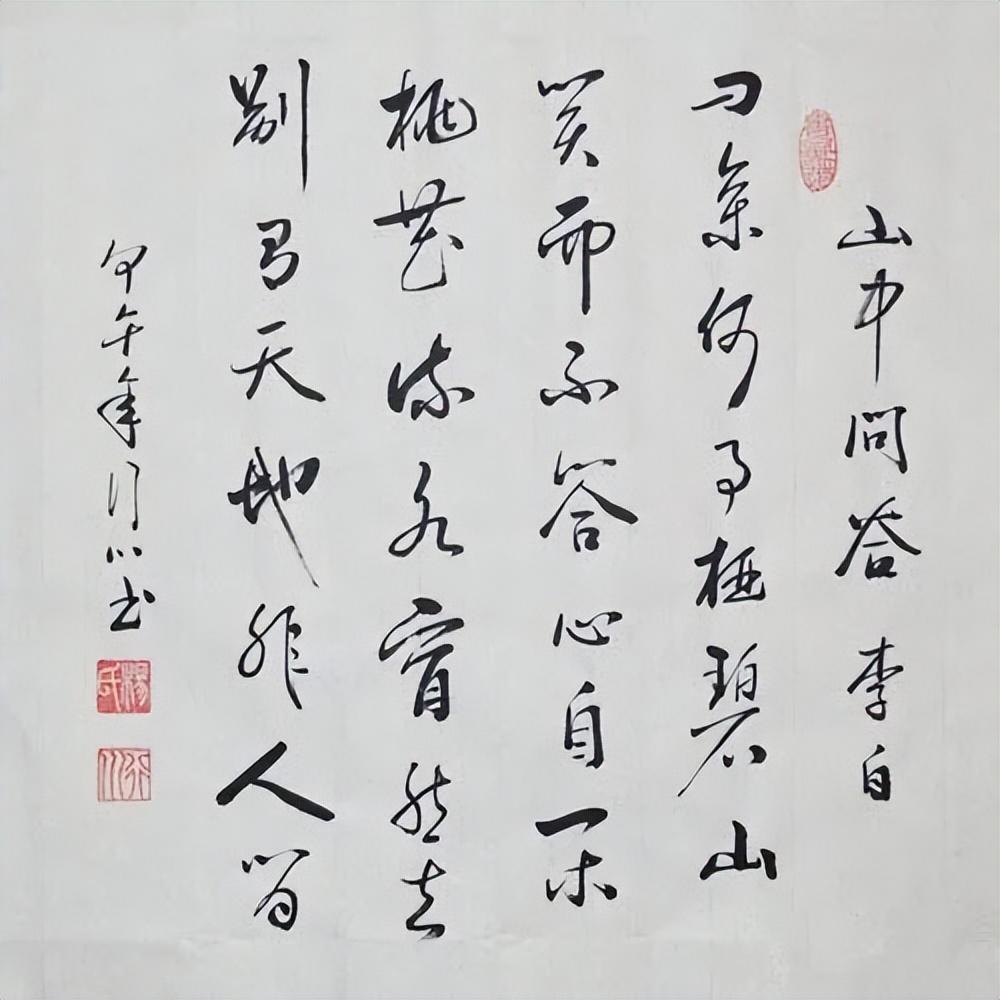 山中問答 李白
问余何事栖碧山
笑而不答心自闲
桃花流水窅然去
别有天地非人间
甲午年行川书
楊氏
行川